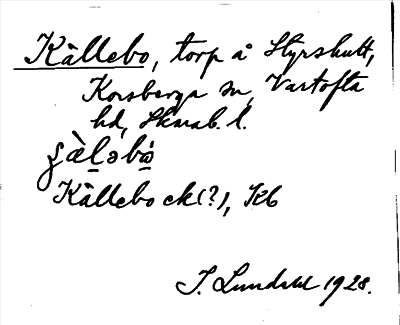 Källebo, torp å Styrshult,
Korsberga sn, Vartofta
hd, Skarab. l.
Källebo ek(?), Kb
I. Lundahl 1928.